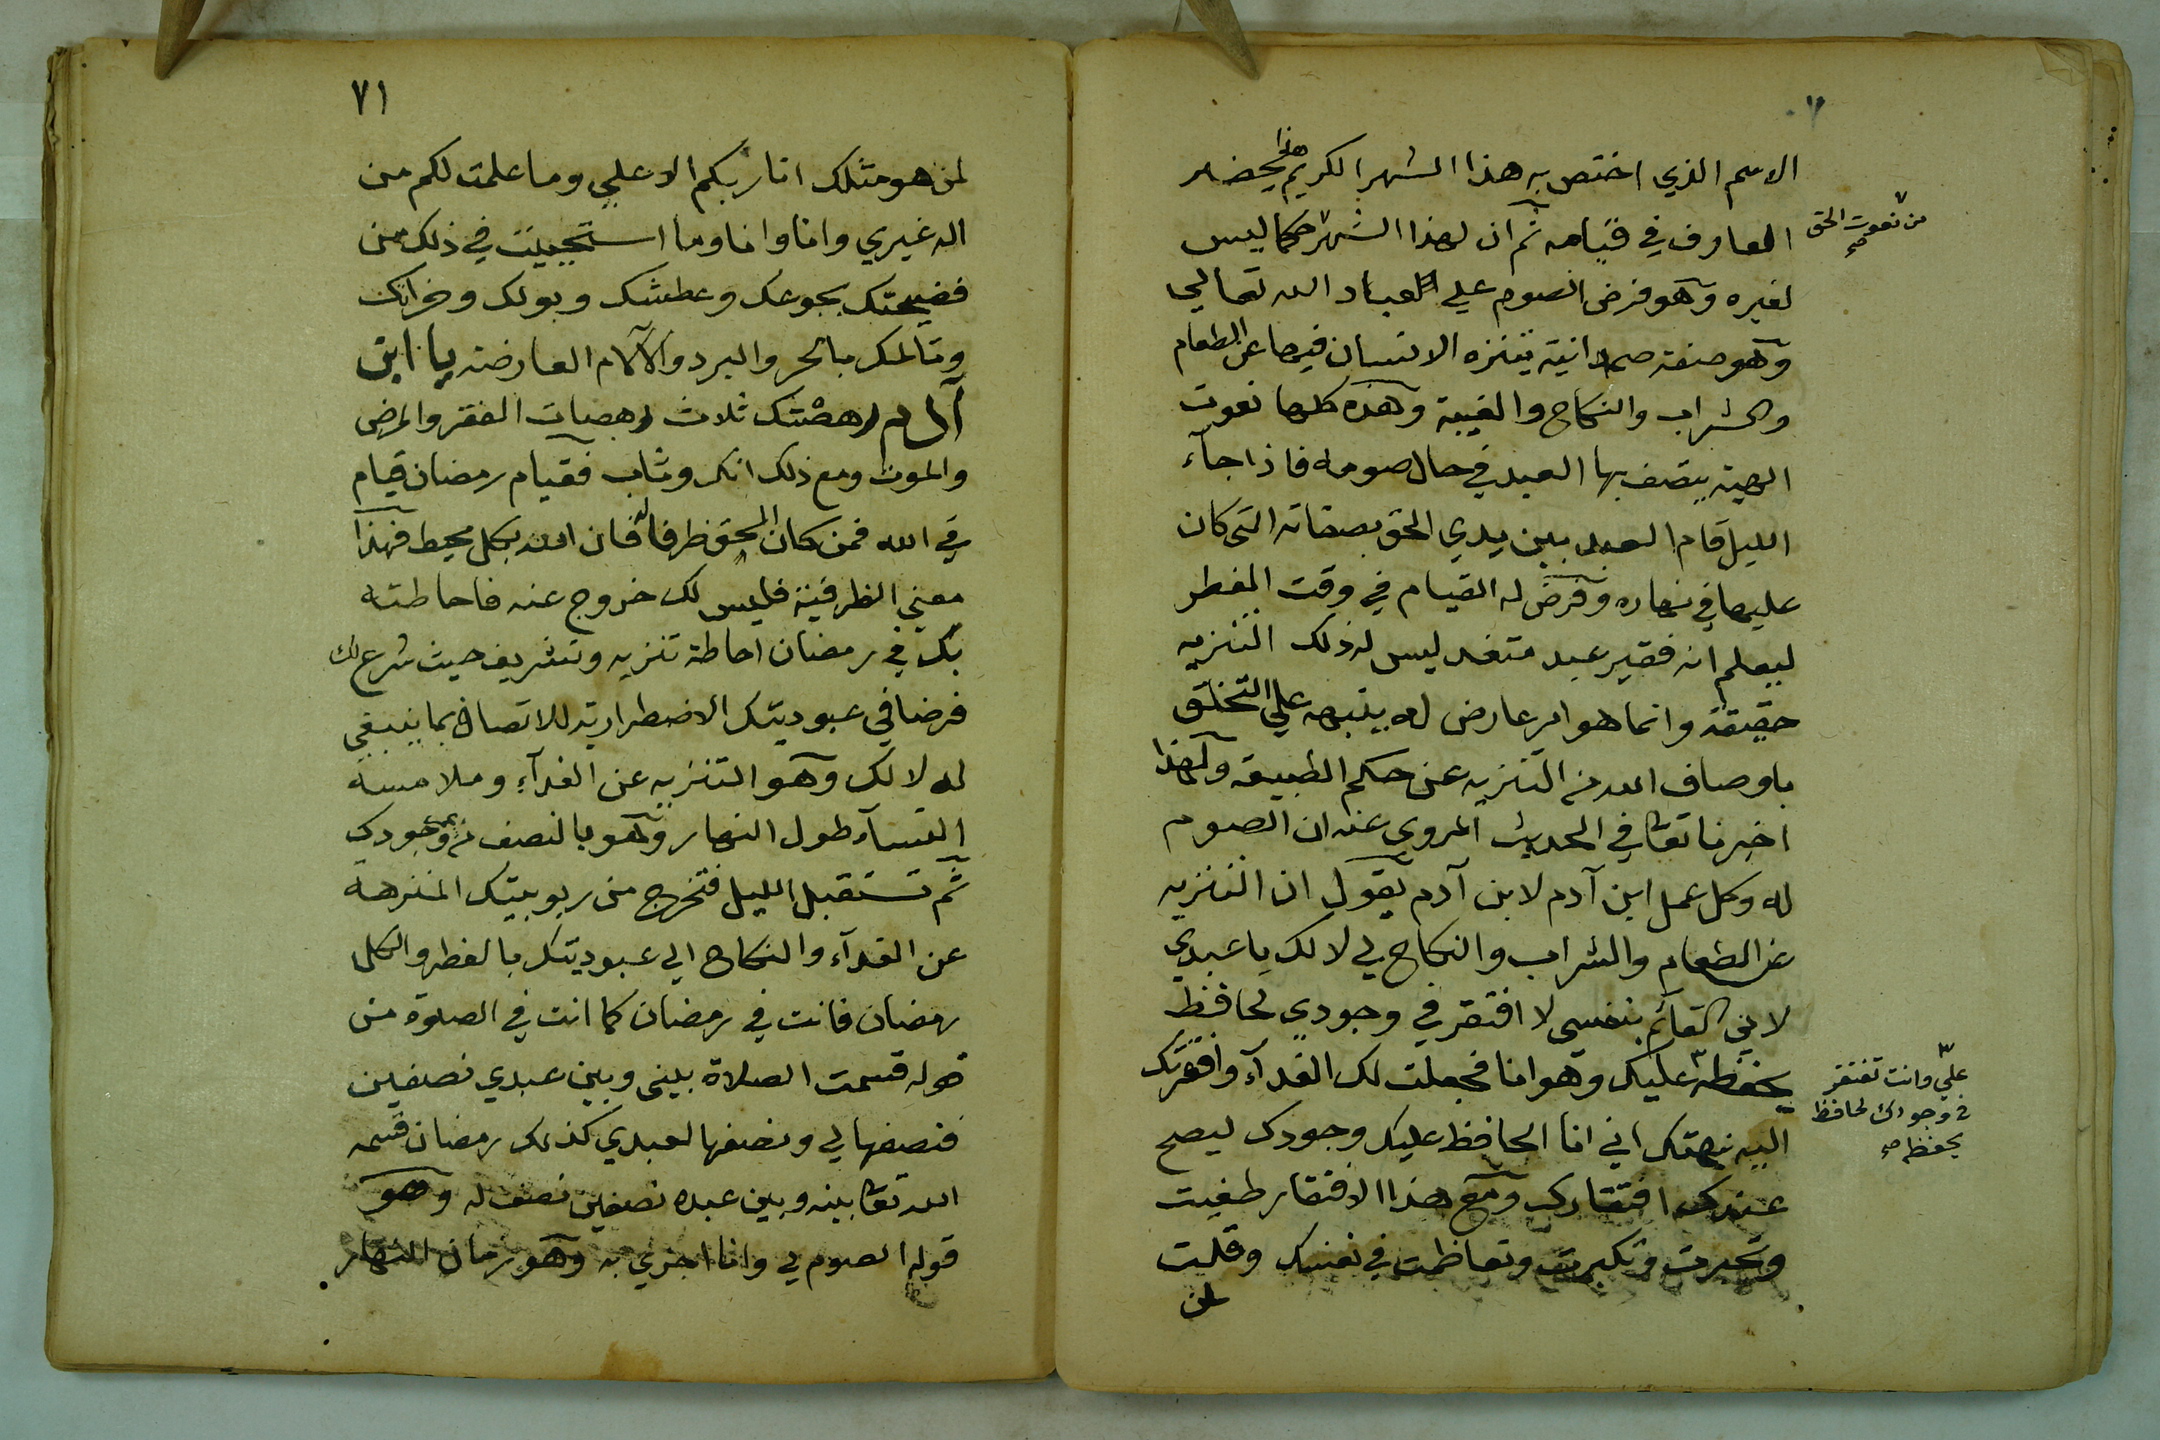 الاسم الذي اختص به هذا الشهر الكريم هذا يحضر
العارف في قيامه ثم ان لهذا الشهر حكما ليس
من نعوت الحق صح
لغيره وهو فرض الصوم على العباد الله تعالي
وهو صفة صمدانية يتنزه الانسان فيها عن الطعام
والشراب والنكاح والغيبة وهذه كلها نعوت
الهية يتصف بها العبد في حال صومه فاذا جآء
الليل قام العبد بين يدي الحق بصفاته التي كان
عليها في نهاره وفرض له القيام في وقت الفطر
ليعلم انه فقير عبد متغد ليس له ذلك التنزيه
حقيقة وانما هو امر عارض له ينبهه علي التخلق
باوصاف الله من التنزيه عن حكم الطبيعة ولهذا
اخبرنا تعا في الحديث المروي عنه ان الصوم
له وكل عمل ابن آدم لابن آدم يقول ان التنزيه
عن الطعام والشراب والنكاح لي لا لك يا عبدي
لاني القآئم بنفسي لا افتقر في وجودي لحافظ
يحفظه عليك وهو انا فجعلت لك الغدآء وافقرتك
علىّ وانت تفتقر
في وجودك لحافظ
يحفظه صح
اليه نبهتك اني انا الحافظ عليك وجودك ليصح
عندك افتقارك ومع هذا الافتقار طغيت
وتجبرت وتكبرت وتعاظمت في نفسك وقلت
لمن
٧١
لمن هو مثلك انا ربكم الاعلي وما علمت لكم من
اله غيري وانا وانا وما استحييت في ذلك من
فضيحتك بجوعك وعطشك وبولك وخرائك
وتالمك بالحر والبرد والآلام العارضة يا ابن
آدم رهصتك ثلاث رهصات الفقر والمرض
والموت ومع ذلك انك وثاب فقيام رمضان قيام
في الله فمن كان الحق ظرفا له فان الله بكل محيط فهذا
معني الظرفية فليس لك خروج عنه فاحاطته
بك في رمضان احاطة تنزيه وتشريف حيث شرع لك
فرضا في عبوديتك الاضطرارية للاتصاف بما ينبغي
له لا لك وهو التنزيه عن الغدآء وملامسة
النسآء طول النهار وهو بالنصف من وجودك
ثم تستقبل الليل فتخرج من ربوبيتك المنزهة
عن الغدآء والنكاح الي عبوديتك بالفطر والكل
رمضان فانت في رمضان كما انت في الصلوة من
قوله قسمت الصلاة بيني وبين عبدي نصفين
فنصفها لي ونصفها لعبدي كذلك رمضان قسمه
الله تعا بينه وبين عبده نصفين نصف له وهو
قوله الصوم لي وانا اجزي به وهو زمان النهار